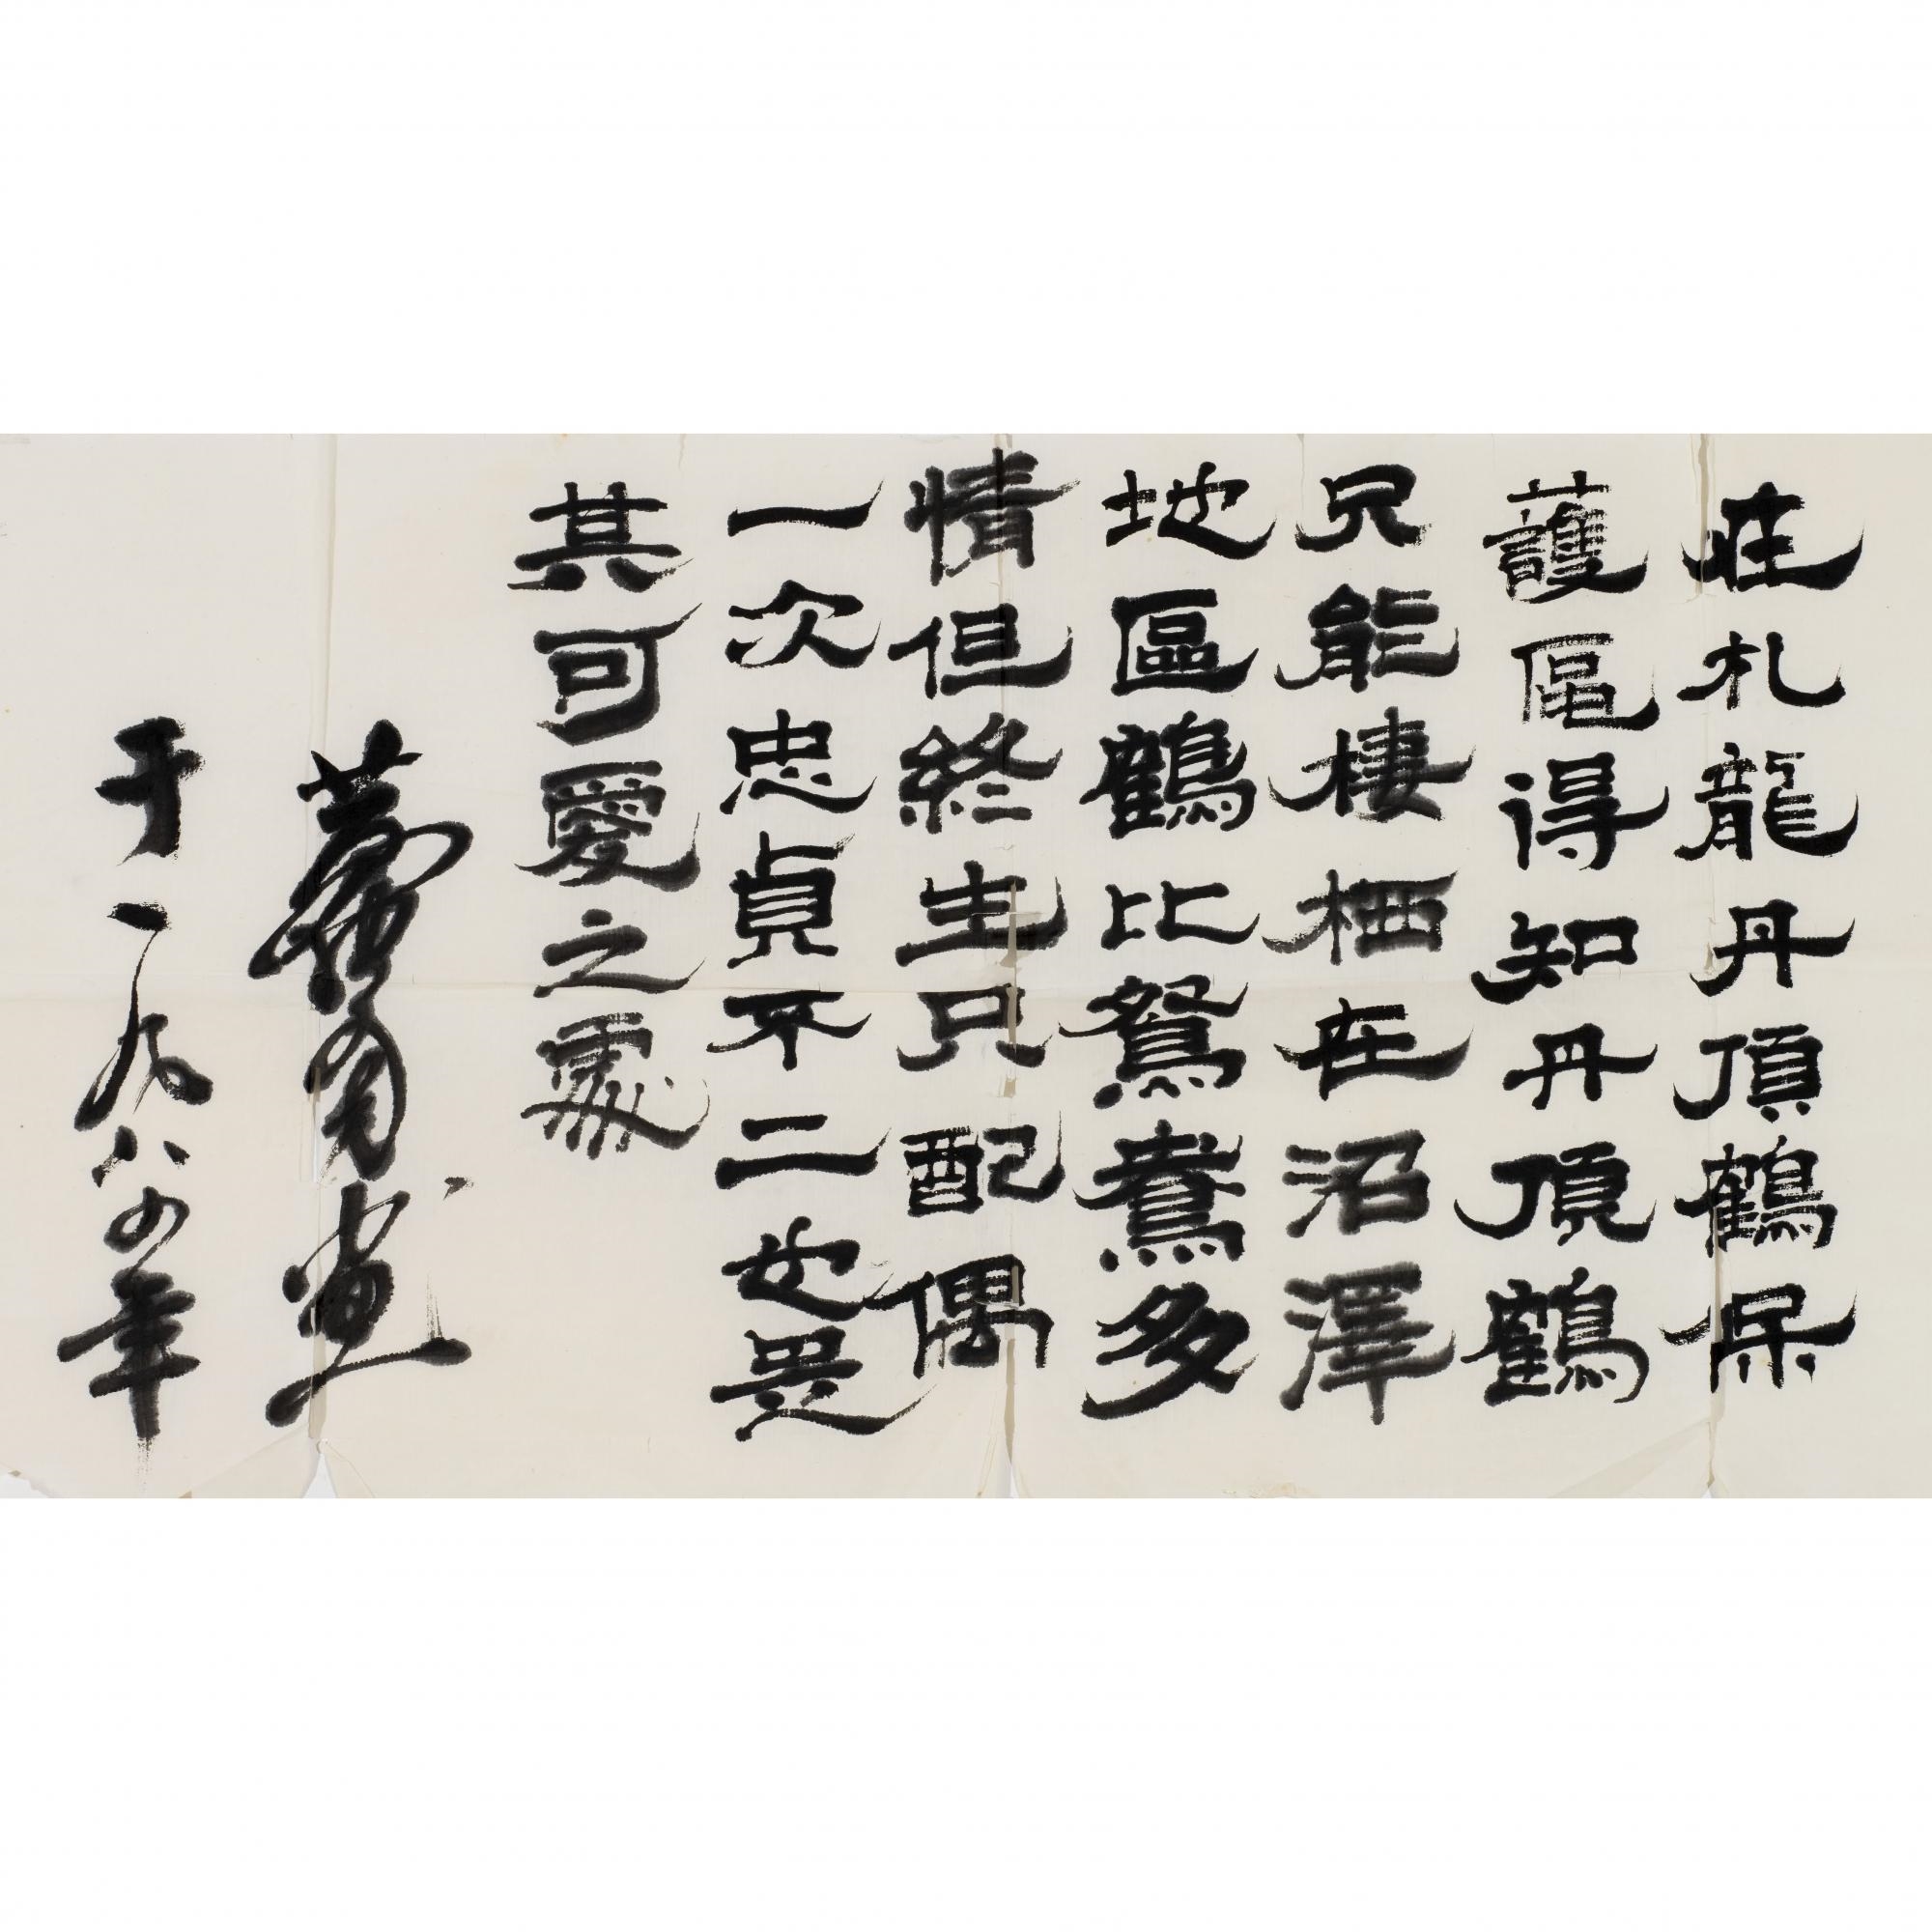 在札龍丹頂鶴保
護區得知丹頂鶴
只能棲栖在沼澤
地區鶴比鴛鴦多
情但終生只配偶
一次忠貞不二也是
其可愛之處
于一九八四年